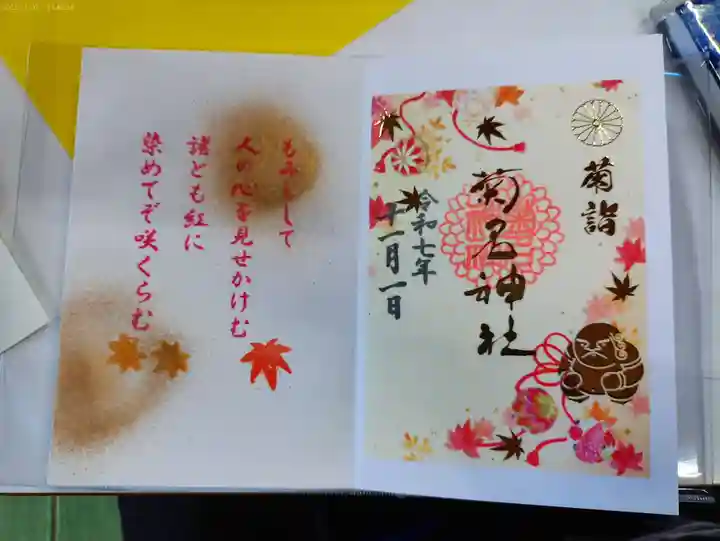 もみじして
人の心を見せかけむ
諸とも紅に
染めてぞ咲くらむ
菊詣
菊名神社
令和七年
十一月一日